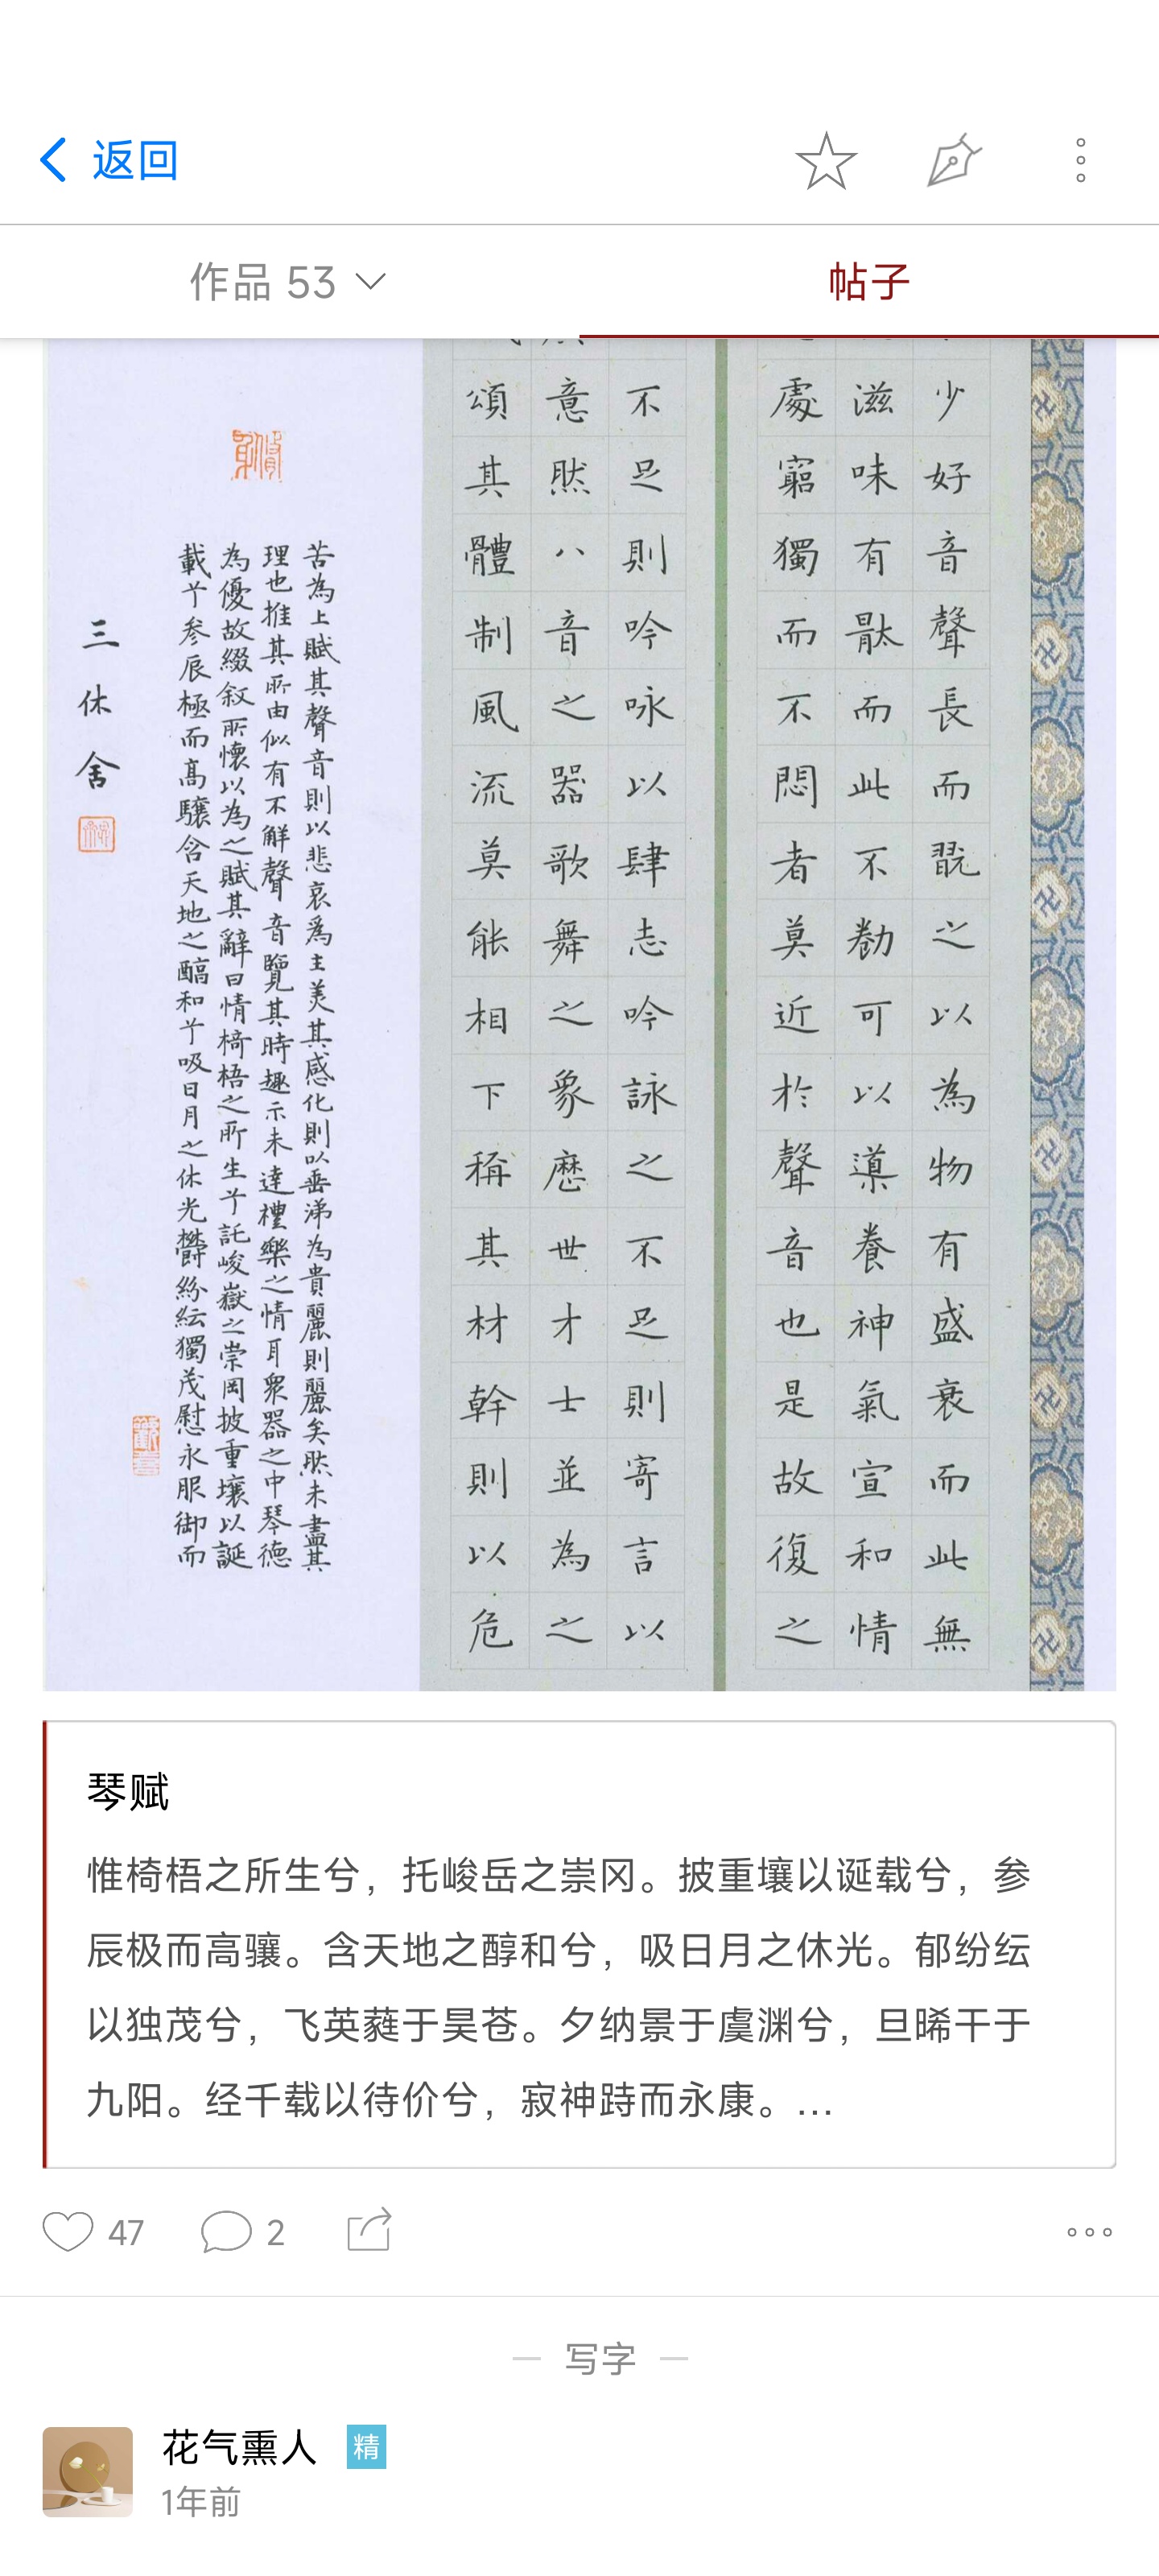 返回
作品 53
帖子
少好音聲長而翫之以為物有盛衰而此無
滋味有猒而此不勌可以導養神氣宣和情
處窮獨而不悶者莫近於聲音也是故復之
不足則吟咏以肆志吟詠之不足則寄言以
意然八音之器歌舞之象歷世才士並為之
頌其體制風流莫能相下稱其材幹則以危
苦為上賦其聲音則以悲哀為主美其感化則以垂涕為貴麗則麗矣然未盡其
理也推其所由似有不解聲音覽其時趣示未達禮樂之情耳衆器之中琴德
為優故綴叙所懷以為之賦其辭曰情椅梧之所生兮託峻嶽之崇岡披重壤以誕
載兮参辰極而高驤含天地之醕和兮吸日月之休光欝紛紜獨茂慰永服御而
三休舍
琴赋
惟椅梧之所生兮，托峻岳之崇冈。披重壤以诞载兮，参
辰极而高骧。含天地之醇和兮，吸日月之休光。郁纷纭
以独茂兮，飞英蕤于昊苍。夕纳景于虞渊兮，旦晞干于
九阳。经千载以待价兮，寂神跱而永康。...
47
2
写字
花气熏人 精
1年前